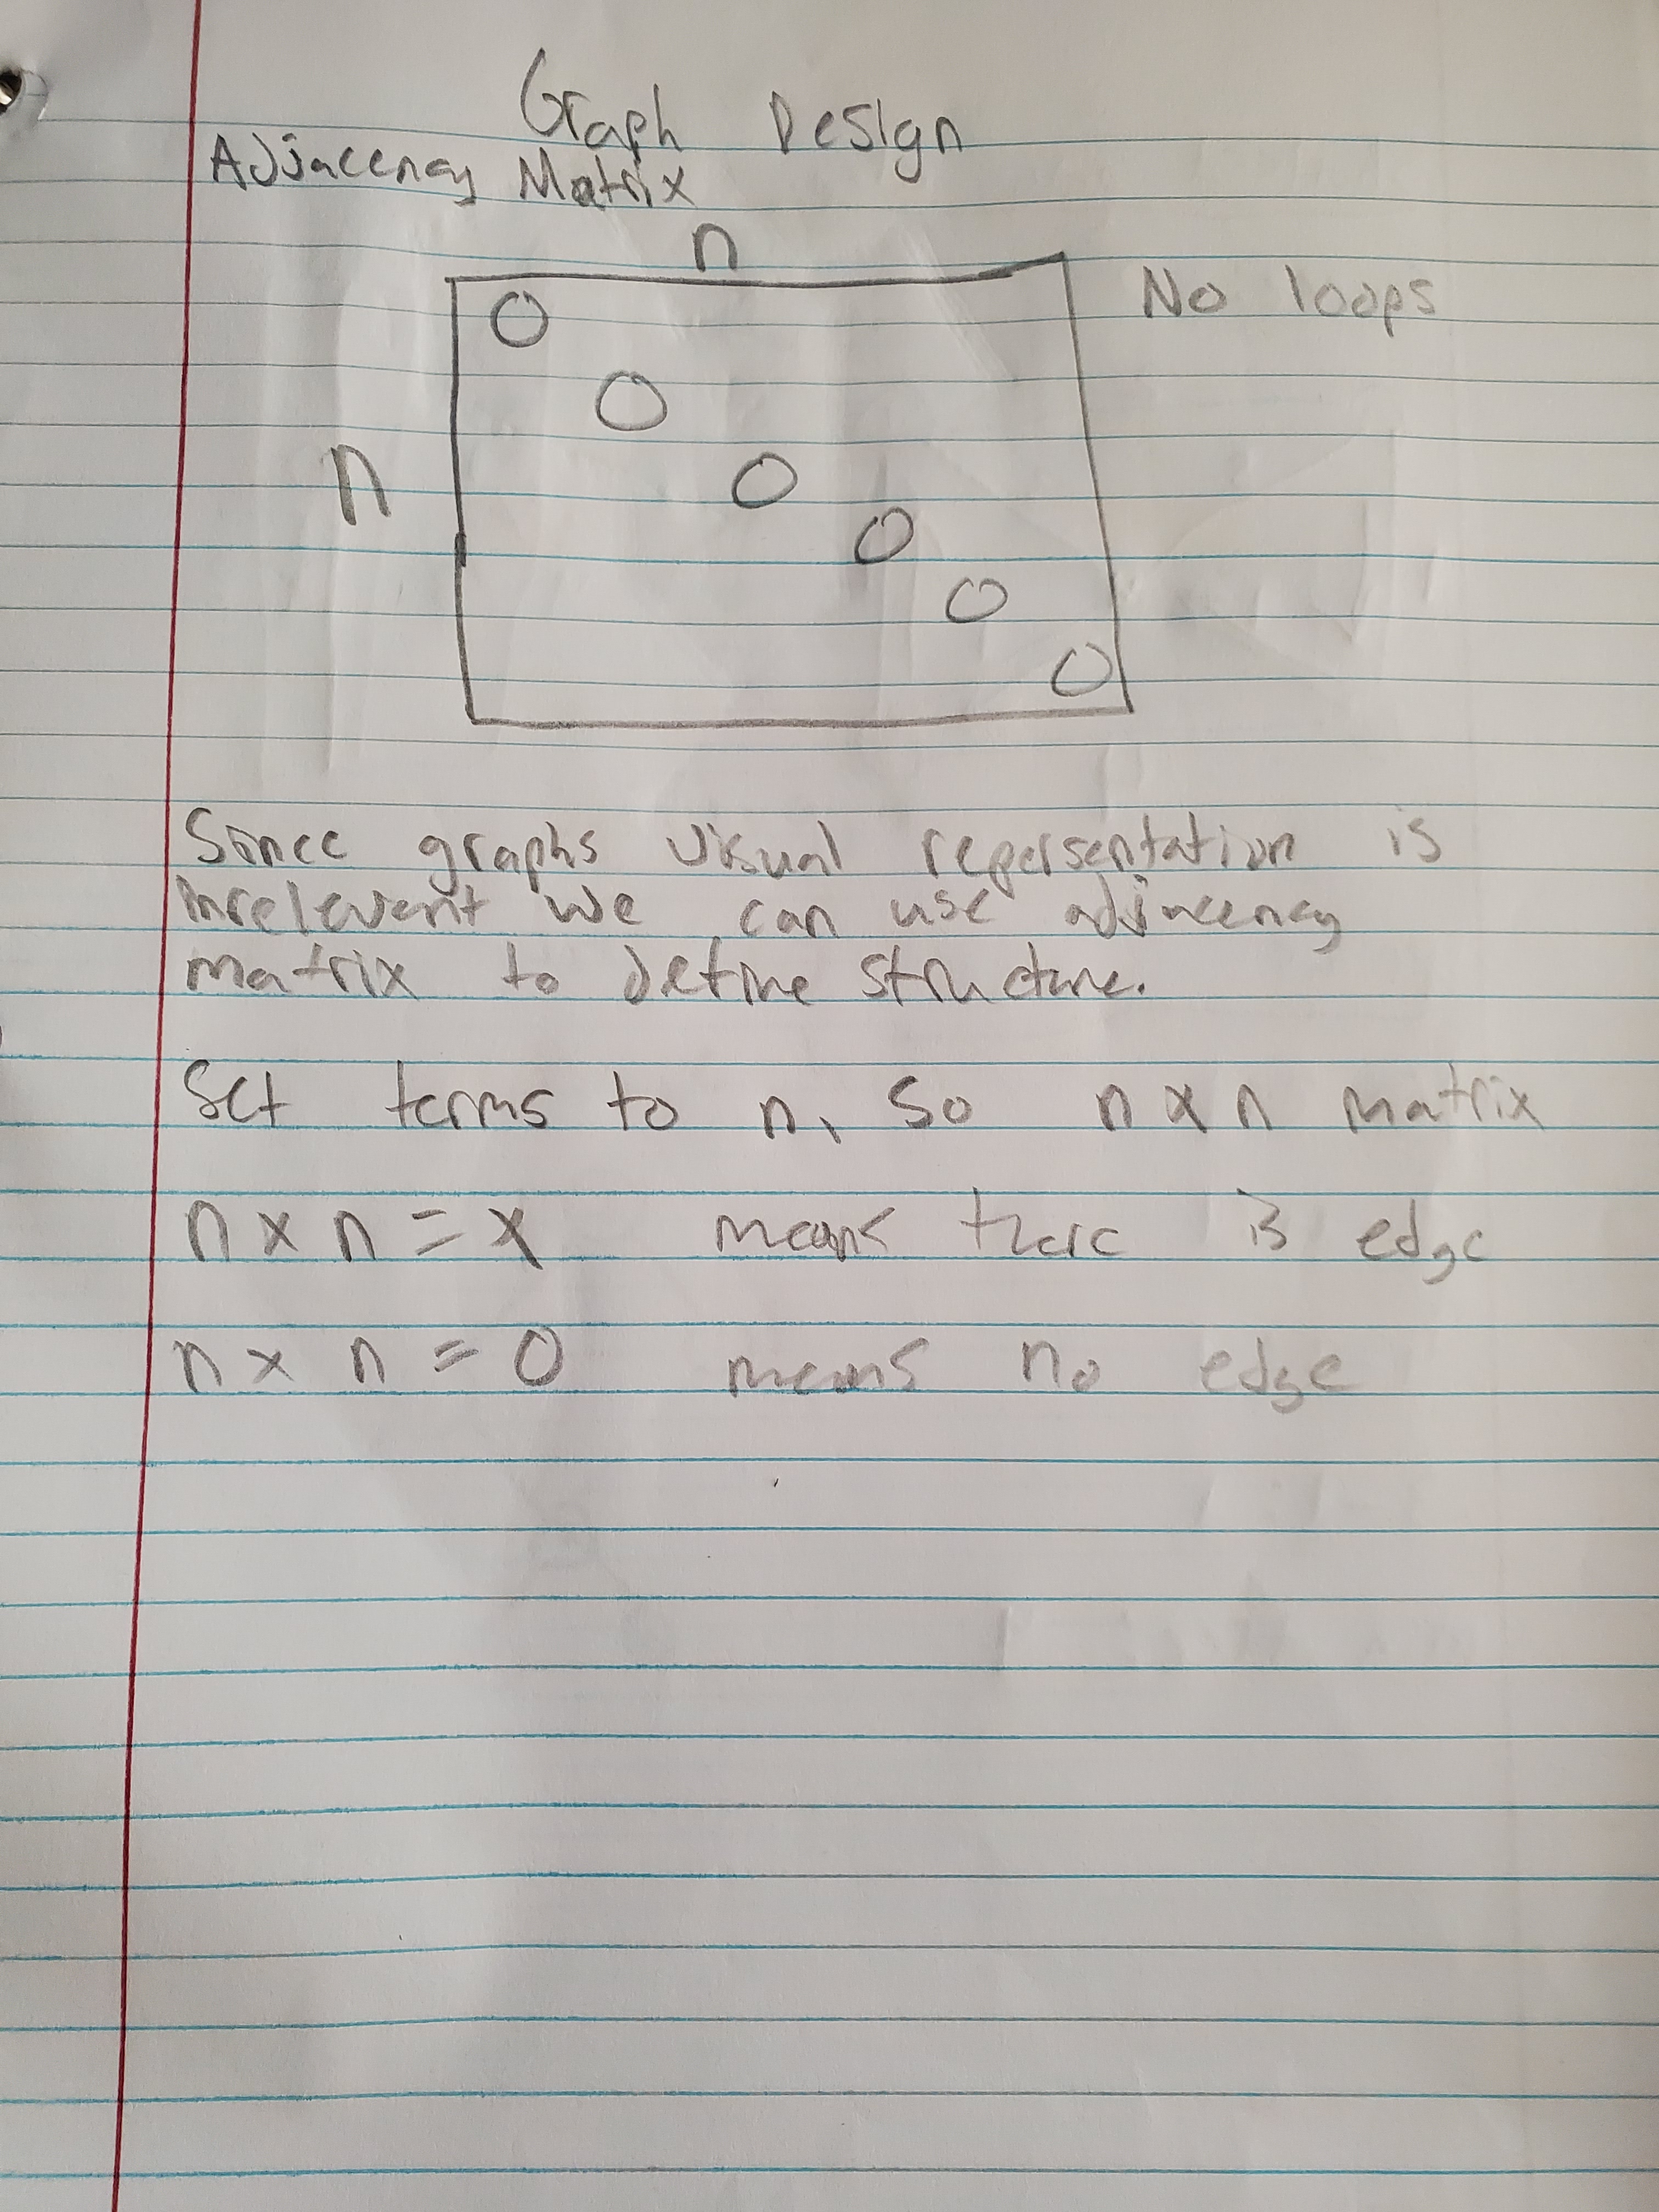 Graph Design
Adjacency Matrix
n
No loops
0
0
n
0
0
0
0
Since graphs visual repersentation is
irrelevent we can use adjacency
matrix to define structure.
Set terms to n, so n x n matrix
n x n = x means there is edge
n x n = 0 means no edge